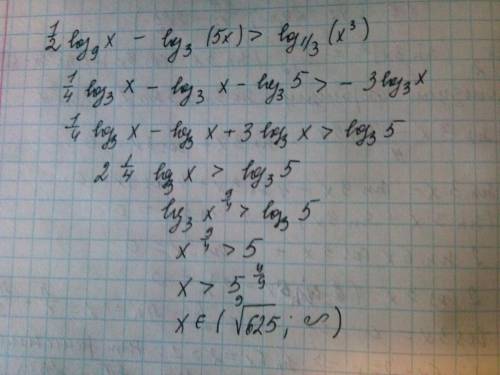 ½ log₉ x − log₃ (5x) > log₁/₃ (x³)
¼ log₃ x − log₃ x − log₃ 5 > − 3 log₃ x
¼ log₃ x − log₃ x + 3 log₃ x > log₃ 5
2 ¼ log₃ x > log₃ 5
log₃ x^(9/4) > log₃ 5
x^(9/4) > 5
x > 5^(4/9)
x ∈ (⁹√625; ∞)